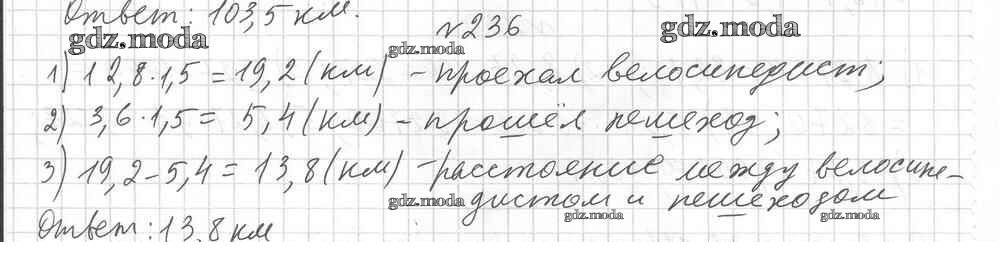 Ответ: 103,5 км.
№236
1) 12,8·1,5=19,2(км) - проехал велосипедист;
2) 3,6·1,5= 5,4(км) - прошёл пешеход;
3) 19,2-5,4=13,8(км) - расстояние между велосипе-
дистом и пешеходом
Ответ: 13,8 км
gdz.moda
gdz.moda
gdz.moda
gdz.moda
gdz.moda
gdz.moda
gdz.moda